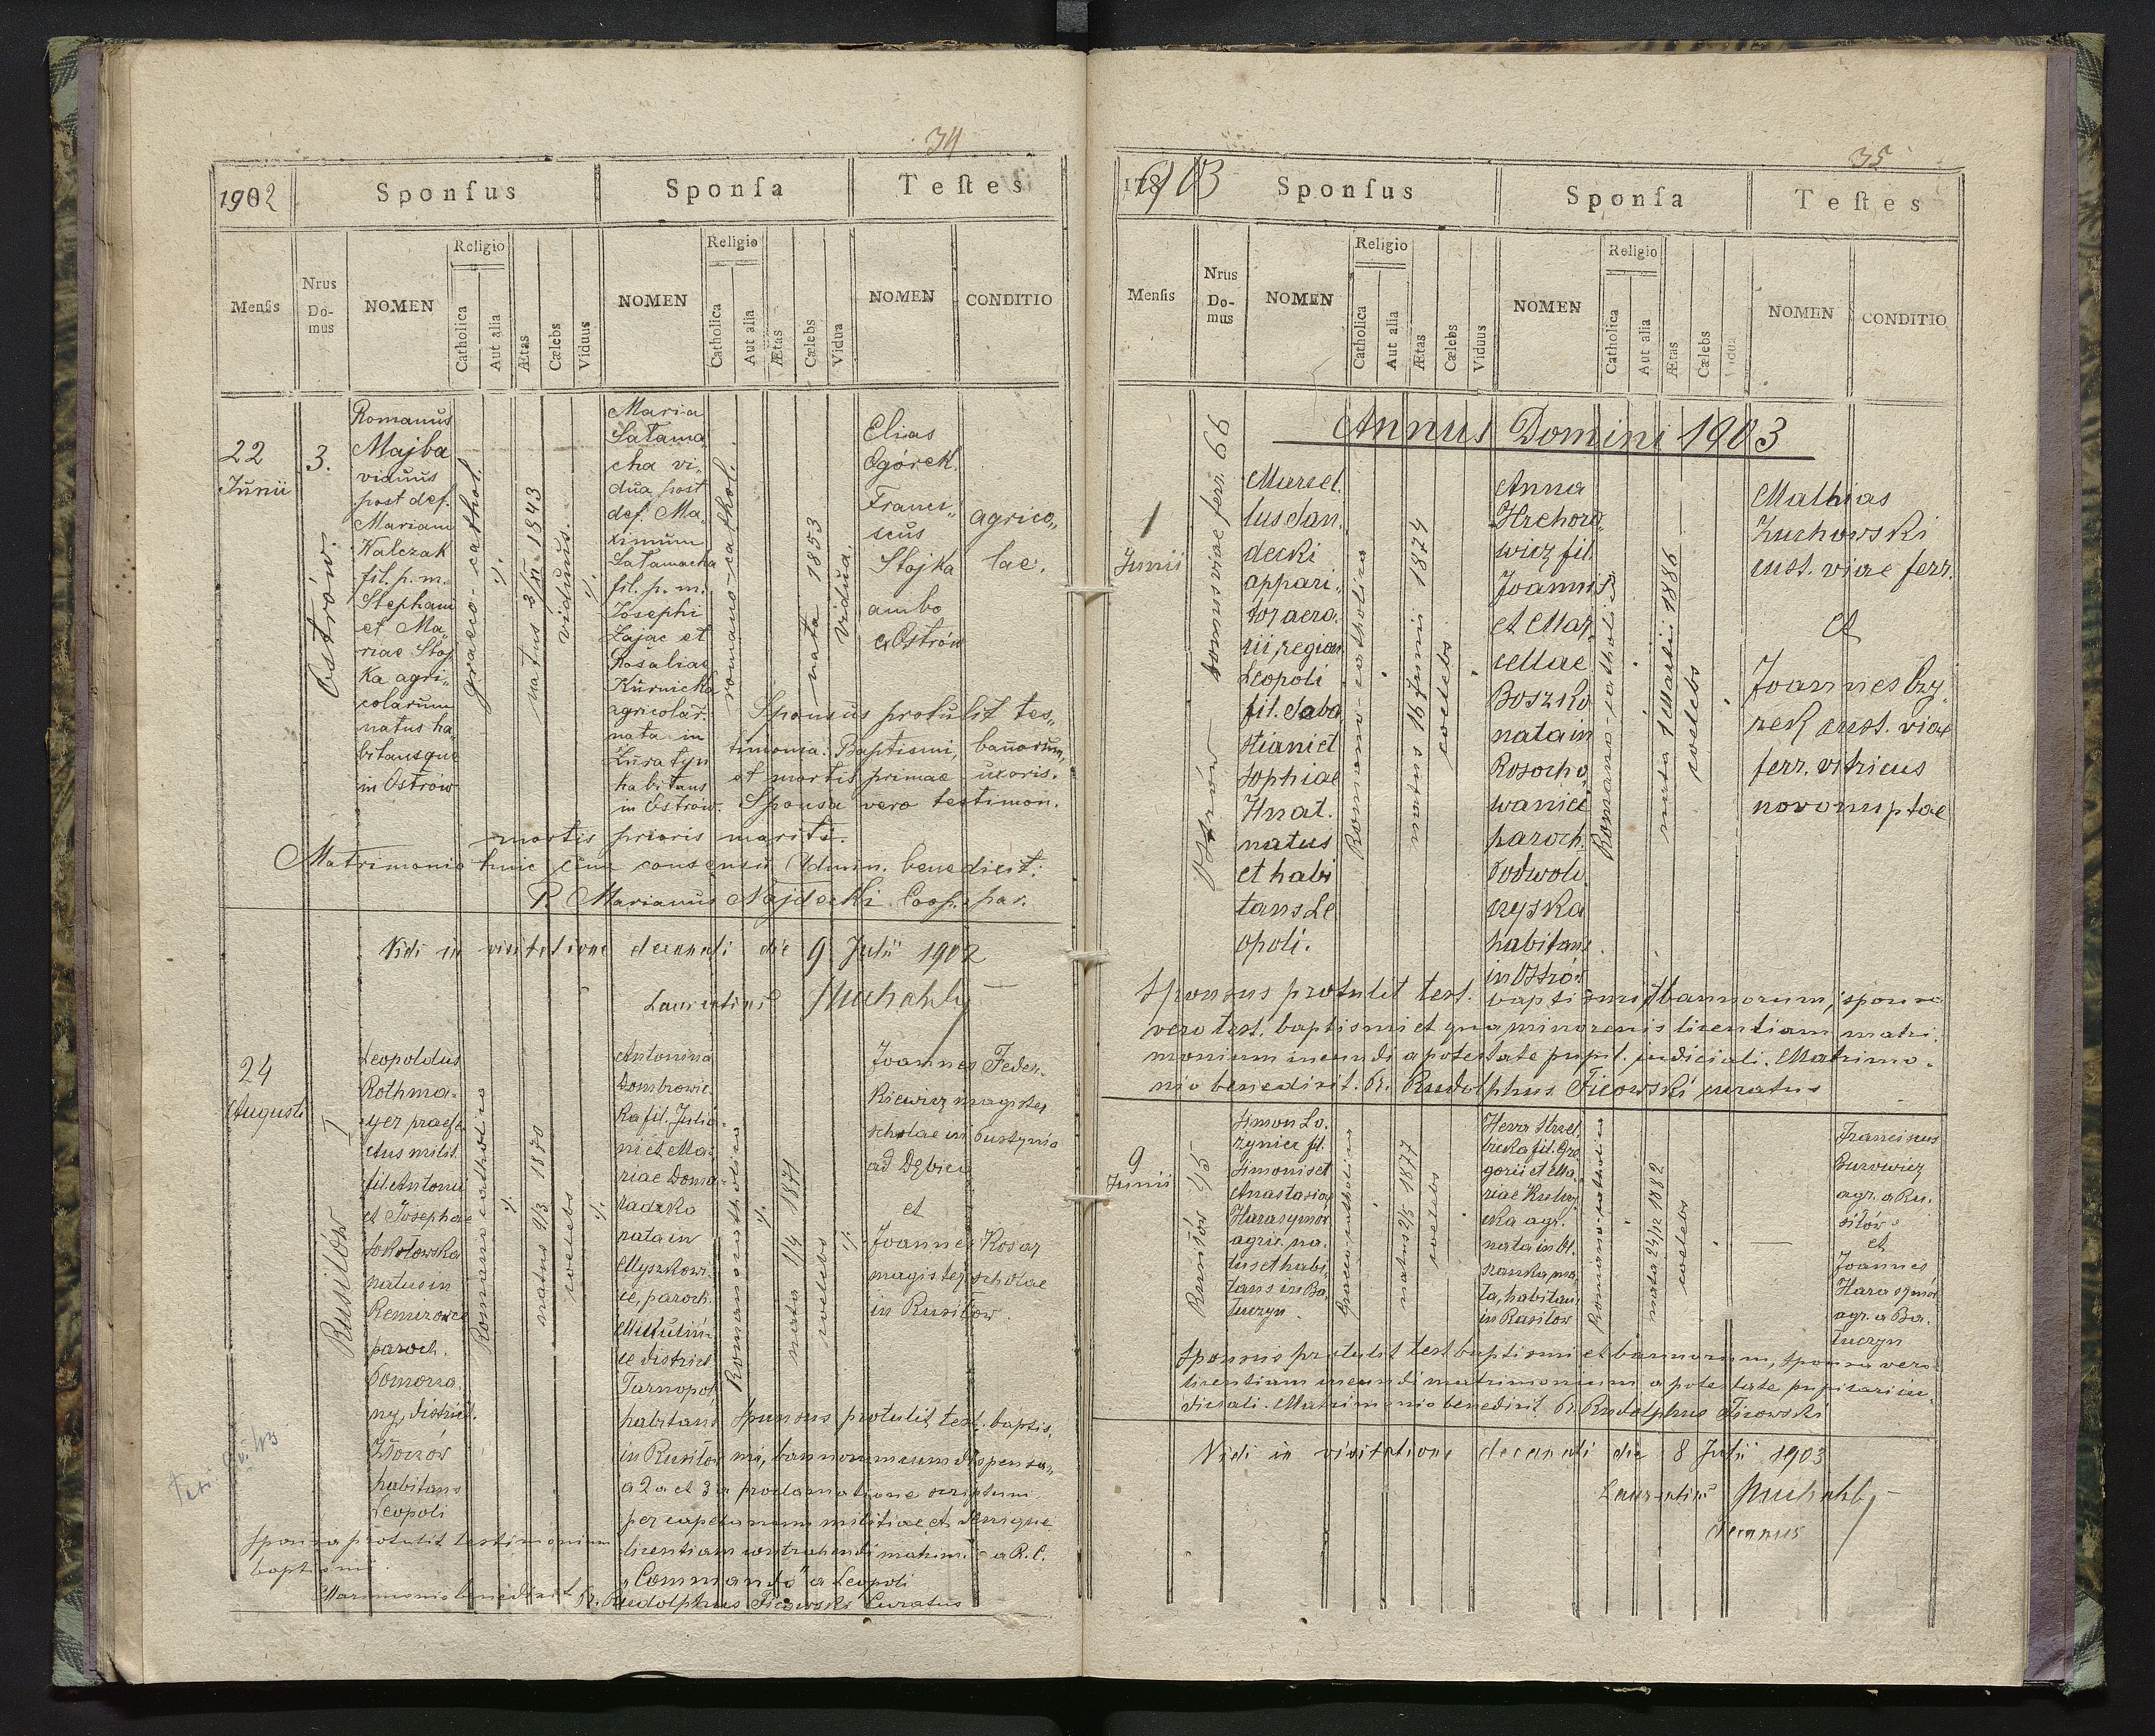 34
1902
Sponſus
Sponſa
Teſtes
Menſis
Nrus Do-mus
NOMEN
Religio
Catholica
Aut alia
Ætas
Cælebs
Viduus
NOMEN
Religio
Catholica
Aut alia
Ætas
Cælebs
Vidua
NOMEN
CONDITIO
22
Junii
3.
Ostrów.
Romanus
Majba
viduus
post def.
Mariam
Walczak
fil. p. m.
Stephani
et Ma„
riae Stoj
ka agri„
colarum
natus ha„
bitansque
in Ostrów
graeco-cathol.
natus 3/XI 1843
viduus.
Maria
Łatama
cha vi„
dua post
def. Ma„
ximum
Łatamacha
fil. p. m.
Josephi
Zając et
Rosaliae
Kurnicka
agricolar.
nata in
Żuratyn
habitans
in Ostrów.
romano-cathol.
nata 1853
vidua.
Elias
Ogórek.
Franci„
scus
Stojka
ambo
ex Ostrów
agrico„
lae.
Sponsus protulit tes„
timonia: Baptismi, bannorum,
et mortis primae uxoris.
Sponsa vero testimon.
mortis prioris mariti.
Matrimonio huic cum consensu Admin. benedixit:
P. Marianus Najdecki Coop. par.
Vidi in visitatione decanali die 9 Julii 1902
Laurentius
24
Augusti
1
Rusiłów
Leopoldus
Rothma-
yer praefe
ctus milit.
fil. Antonii
et Josephae
Sokołowska
natus in
Remizowce
paroch.
Pomorza
ny, district.
Złoczów
habitans
Leopoli
Romano catholica
natus 9/3 1870
coelebs
Antonina
Dombrowic
ka fil. Julia-
ni et Ma-
riae Doma-
radzka
nata in
Myszkowi-
ce, paroch.
Mikuliń-
ce district
Tarnopol
habitans
in Rusiłów
Romano catholica
nata 1/4 1871
coelebs
Joannes Feder-
kiewicz magister
scholae in Pustynia
ad Dębica
et
Joannes Kosar
magister scholae
in Rusiłow.
Sponsus protulit test. baptis.
mi, bannorum cum dispensa„
a 2a et 3a proclamatione scriptum
per capelanum militiae et denique
licentiam contrahendi matrim. a R. C.
„Commando" a Leopoli
Sponsa protulit testimonium
baptismi
Matrimonio benedixit Pr. Rudolphus Ficowski Curatus
35
178
1903
Sponſus
Sponſa
Teſtes
Menſis
Nrus Do-mus
NOMEN
Religio
Catholica
Aut alia
Ætas
Cælebs
Viduus
NOMEN
Religio
Catholica
Aut alia
Ætas
Cælebs
Vidua
NOMEN
CONDITIO
Annus Domini 1903
1
Junii
Ostrów — domus viae ferr. 99
Marcel.
lus San.
decki
appari-
tor aera.
rii region.
Leopoli
fil. Seba
stiani et
Sophiae
Hnat.
natus
et habi
tans Le
opoli.
Romano-catholica
natus 16 Junii 1874
coelebs
Anna
Hrehoro
wicz fil.
Joannis
et Mar.
cellae
Boszko
nata in
Rosocho
waniec
paroch.
Podwoło.
czyska
habitans
in Ostrów
Romano-catholica
nata 1 Martii 1886
coelebs
Mathias
Zuchowski
cust. viae ferr.
et
Joannes Czy.
żek cust. viae
ferr. vitricus
novonuptae
Sponsus protulit test. baptismi et bannorum, sponsa
vero test. baptismi et qua minorenis licentiam matri.
monium ineundi a potestate pupil. judiciali. Matrimo.
nio benedixit. Pr. Rudolphus Ficowski curatus
9
Junii
Rusiłów 45
Simon Lo.
zyniec fil.
Simonis et
Anastasiae
Harasymów
agric. na.
tus et habi.
tans in Ba.
tuczyn.
Graeco-catholica
natus 2/5 1877
coelebs
fil. Gre.
gorii et Ma.
riae
agr.
nata, habitans
in Rusiłow
Romano-catholica
nata 24/12 1882
coelebs
Franciscus
Burowicz
agr. a Ru.
siłów
et
Joannes
Harasymów
agr. a Ba.
tuczyn
Sponsus protulit test baptismi et bannorum, sponsa vero
licentiam ineundi matrimonium a potestate pupilari iu.
diciali. Matrimonio benedixit Pr. Rudolphus Ficowski
Vidi in visitatione decanali die 8 Julii 1903
Laurentius
decanus